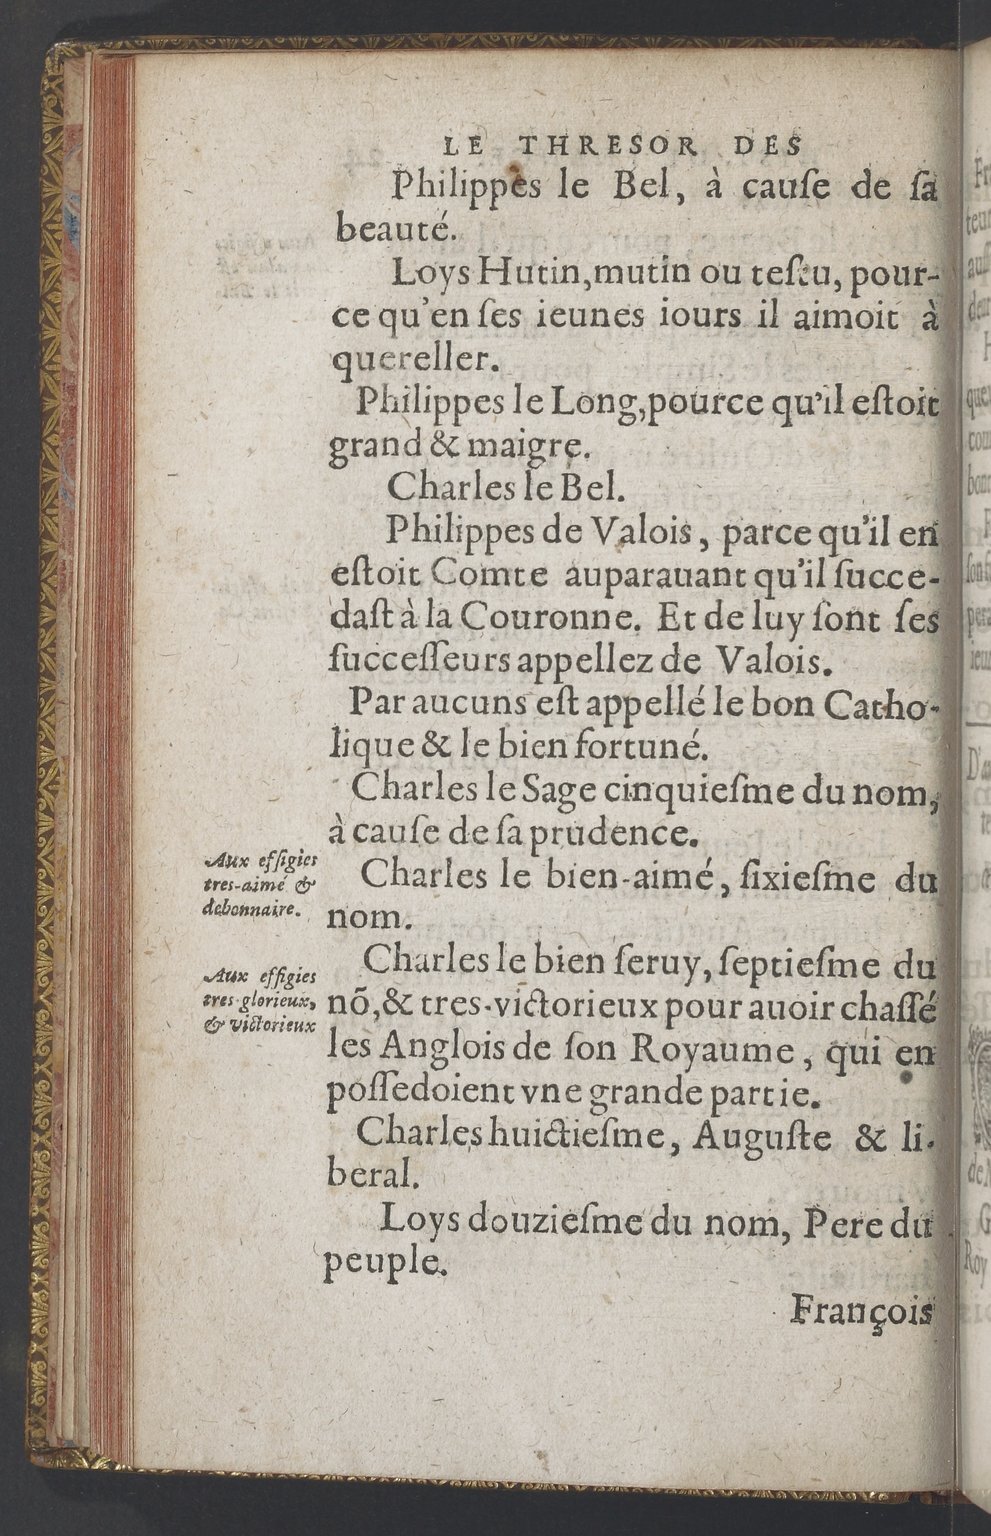 LE THRESOR DES
Philippes le Bel, à cauſe de ſa
beauté.
Loys Hutin, mutin ou teſtu, pour-
ce qu'en ſes ieunes iours il aimoit à
quereller.
Philippes le Long, pource qu'il eſtoit
grand & maigre.
Charles le Bel.
Philippes de Valois, parce qu'il en
eſtoit Comte auparauant qu'il ſucce-
daſt à la Couronne. Et de luy ſont ſes
ſucceſſeurs appellez de Valois.
Par aucuns eſt appellé le bon Catho-
lique & le bien fortuné.
Charles le Sage cinquieſme du nom,
à cauſe de ſa prudence.
Aux effigies
tres-aimé &
debonnaire.
Charles le bien-aimé, ſixieſme du
nom.
Charles le bien ſeruy, ſeptieſme du
Aux effigies
tres-glorieux,
& victorieux
nõ, & tres-victorieux pour auoir chaſſé
les Anglois de ſon Royaume, qui en
poſſedoient vne grande partie.
Charles huictieſme, Auguſte & li-
beral.
Loys douzieſme du nom, Pere du
peuple.
François